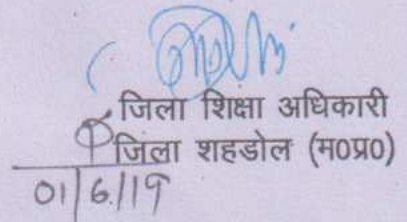 जिला शिक्षा अधिकारी
जिला शहडोल (म०प्र०)
01/6/19